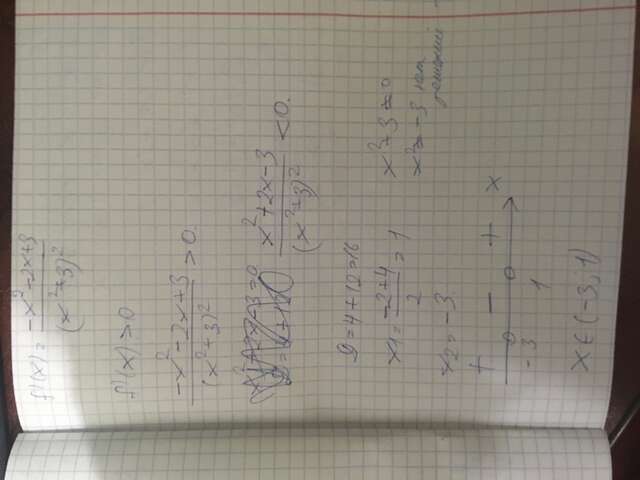 f'(x) = (-x² - 2x + 3)/(x² + 3)²
f'(x) > 0
(-x² - 2x + 3)/(x² + 3)² > 0.
(x² + 2x - 3)/(x² + 3)² < 0.
D = 4 + 12 = 16
x₁ = (-2 + 4)/2 = 1
x₂ = -3.
x² + 3 ≠ 0
x² ≠ -3 нет
решений
+ - + x
-3 1
x ∈ (-3; 1)